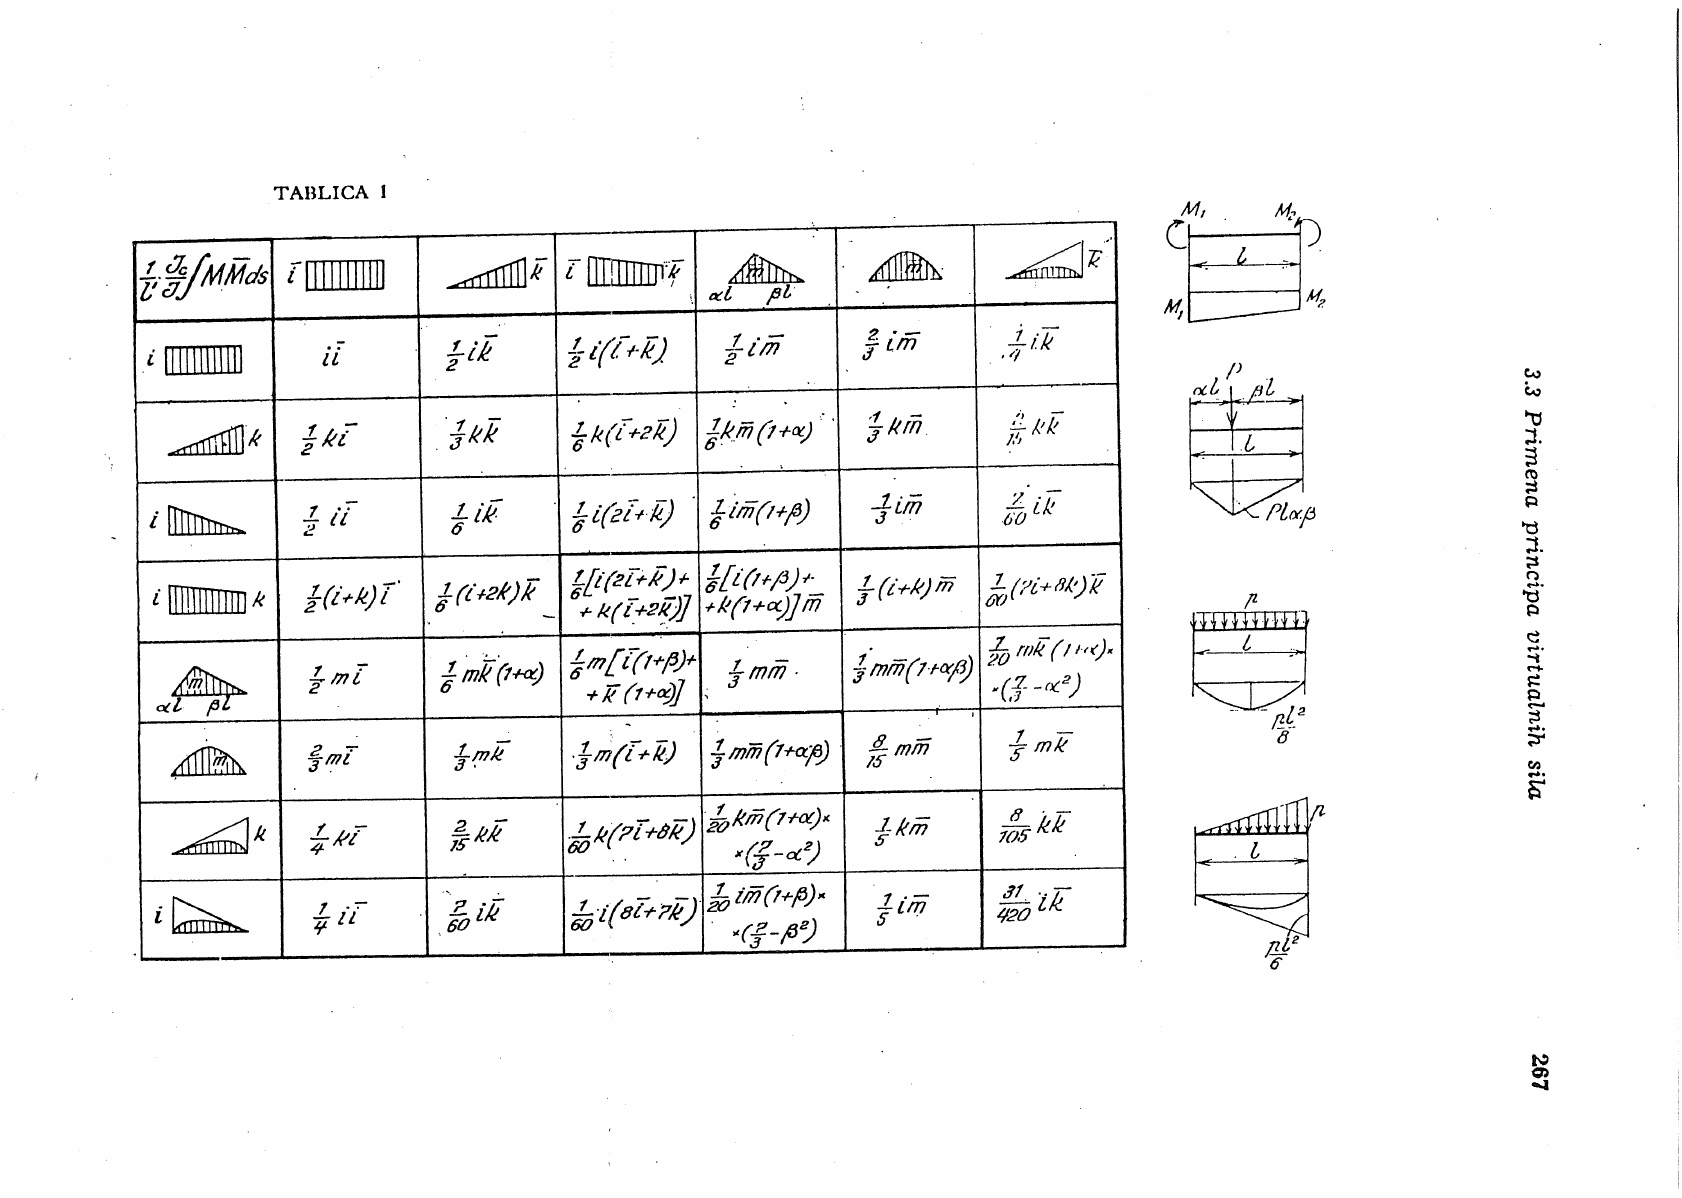 TABLICA 1
1/l' · Jc/J ∫MM̄ds	ī	k̄	ī k̄	m̄ αl βl	m̄	k̄
i	iī	1/2 ik̄	1/2 i(ī+k̄)	1/2 im̄	2/3 im̄	1/4 ik̄
k	1/2 kī	1/3 kk̄	1/6 k(ī+2k̄)	1/6 km̄(1+α)	1/3 km̄	2/15 kk̄
i	1/2 iī	1/6 ik̄	1/6 i(2ī+k̄)	1/6 im̄(1+β)	1/3 im̄	7/60 ik̄
i k	1/2 (i+k)ī	1/6 (i+2k)k̄	1/6[i(2ī+k̄)+ +k(ī+2k̄)]	1/6[i(1+β)+ +k(1+α)]m̄	1/3 (i+k)m̄	1/60 (7i+8k)k̄
m αl βl	1/2 mī	1/6 mk̄(1+α)	1/6 m[ī(1+β)+ +k̄(1+α)]	1/3 mm̄	1/3 mm̄(1+αβ)	1/20 mk̄(1+α)× ×(7/3-α²)
m	2/3 mī	1/3 mk̄	1/3 m(ī+k̄)	1/3 mm̄(1+αβ)	8/15 mm̄	1/5 mk̄
k	1/4 kī	2/15 kk̄	1/60 k(7ī+8k̄)	1/20 km̄(1+α)× ×(7/3-α²)	1/5 km̄	8/105 kk̄
i	1/4 iī	7/60 ik̄	1/60 i(8ī+7k̄)	1/20 im̄(1+β)× ×(7/3-β²)	1/5 im̄	31/420 ik̄
M₁ M₂
l
M₁ M₂
P
αl βl
l
Plαβ
p
l
pl²/8
p
l
pl²/6
3.3 Primena principa virtualnih sila
267